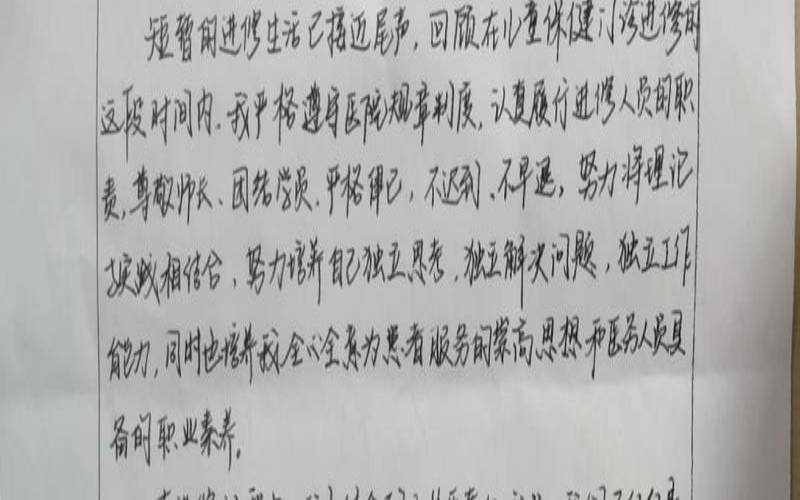 短暂的进修生活已接近尾声,回顾在儿童保健门诊进修的
这段时间内,我严格遵守医院规章制度,认真履行进修人员的职
责,尊敬师长、团结学员、严格律己,不迟到、不早退,努力将理论
与实践相结合、努力培养自己独立思考,独立解决问题,独立工作
能力,同时也培养我全心全意为患者服务的崇高思想和医务人员具
备的职业素养。